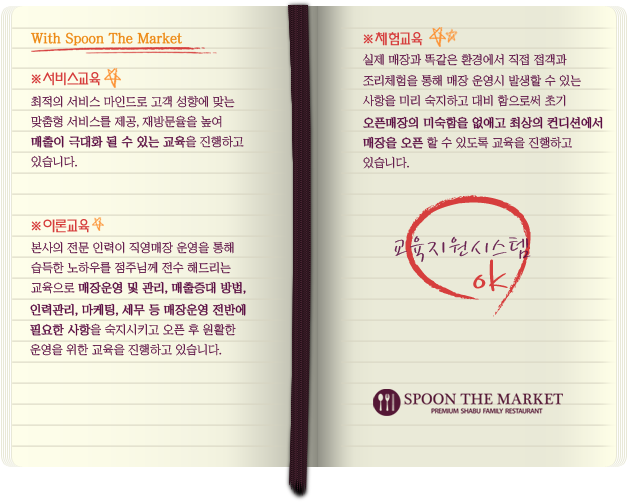 With Spoon The Market
※서비스교육
최적의 서비스 마인드로 고객 성향에 맞는
맞춤형 서비스를 제공, 재방문율을 높여
매출이 극대화 될 수 있는 교육을 진행하고
있습니다.
※이론교육
본사의 전문 인력이 직영매장 운영을 통해
습득한 노하우를 점주님께 전수 해드리는
교육으로 매장운영 및 관리, 매출증대 방법,
인력관리, 마케팅, 세무 등 매장운영 전반에
필요한 사항을 숙지시키고 오픈 후 원활한
운영을 위한 교육을 진행하고 있습니다.
※체험교육
실제 매장과 똑같은 환경에서 직접 접객과
조리체험을 통해 매장 운영시 발생할 수 있는
사항을 미리 숙지하고 대비 함으로써 초기
오픈매장의 미숙함을 없애고 최상의 컨디션에서
매장을 오픈 할 수 있도록 교육을 진행하고
있습니다.
교육지원시스템
ok
SPOON THE MARKET
PREMIUM SHABU FAMILY RESTAURANT